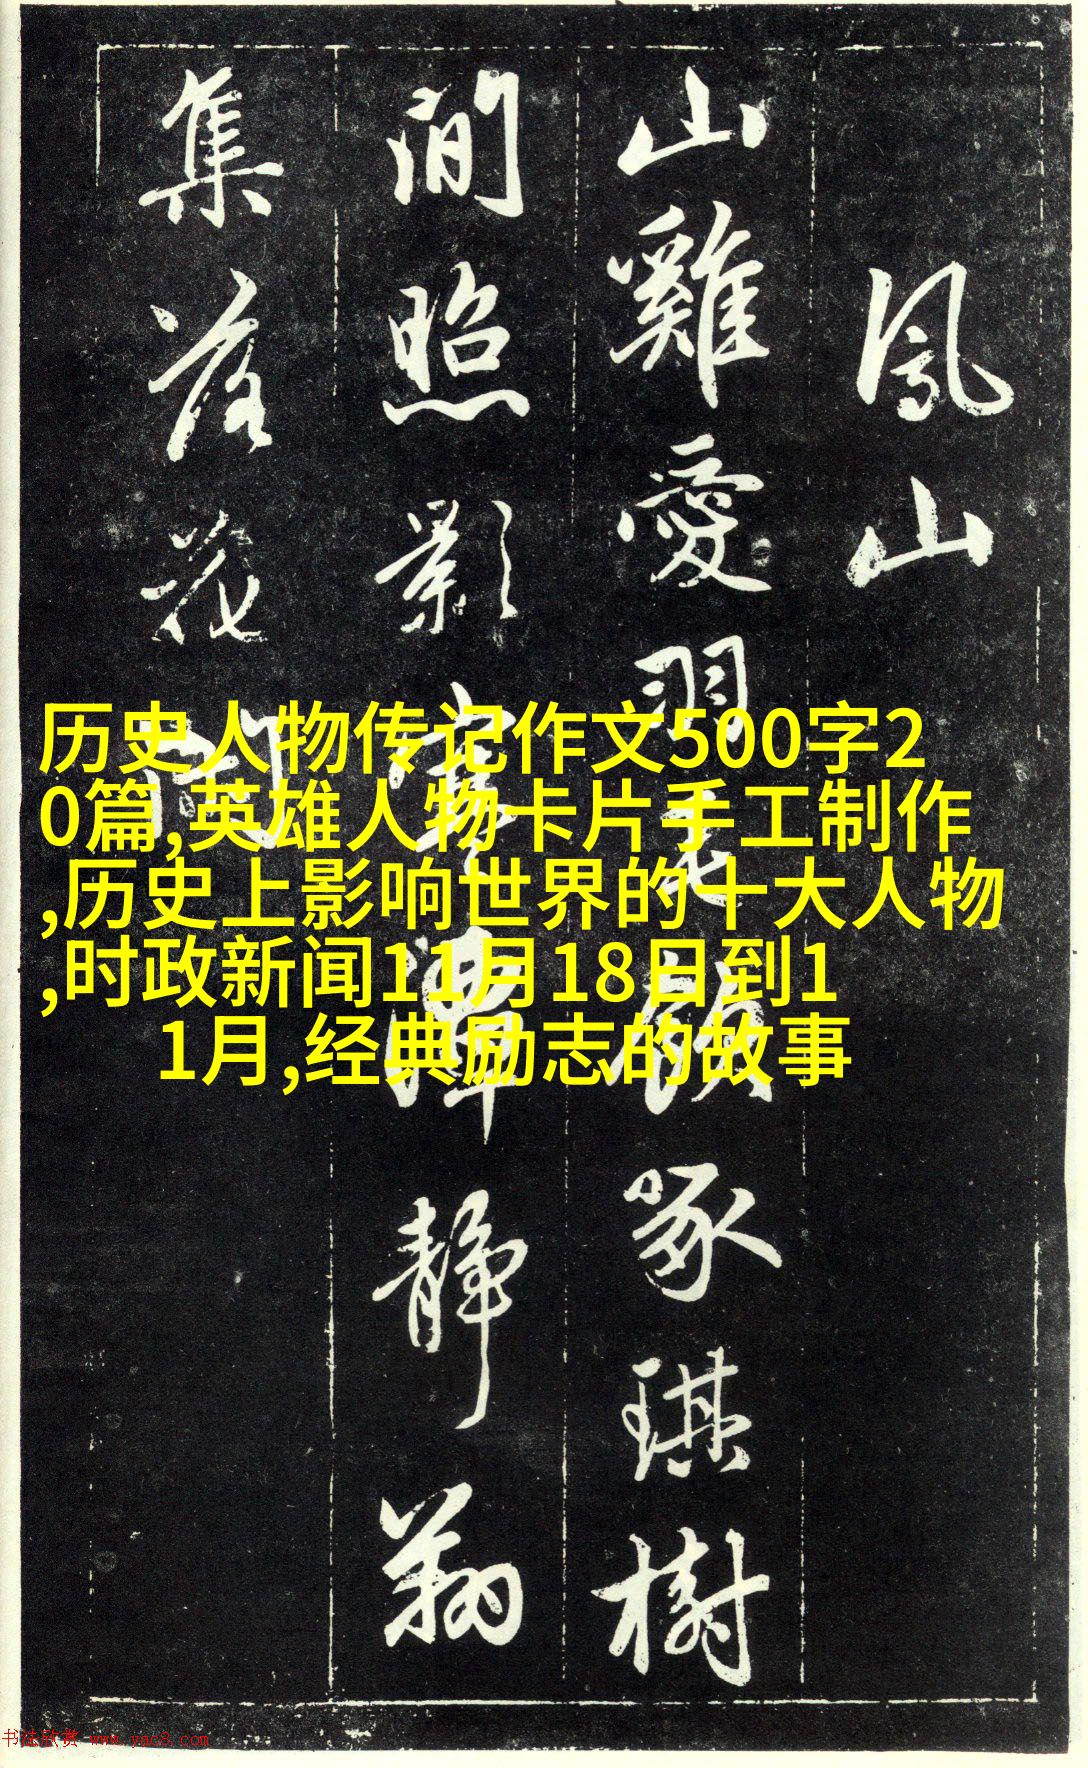 鳳山
山雞愛羽毛飲啄琪樹
間照影寒潭靜翔
集落花閒
历史人物传记作文500字2
0篇,英雄人物卡片手工制作
,历史上影响世界的十大人物
,时政新闻11月18日到1
1月,经典励志的故事
书法欣赏 www.yac8.com